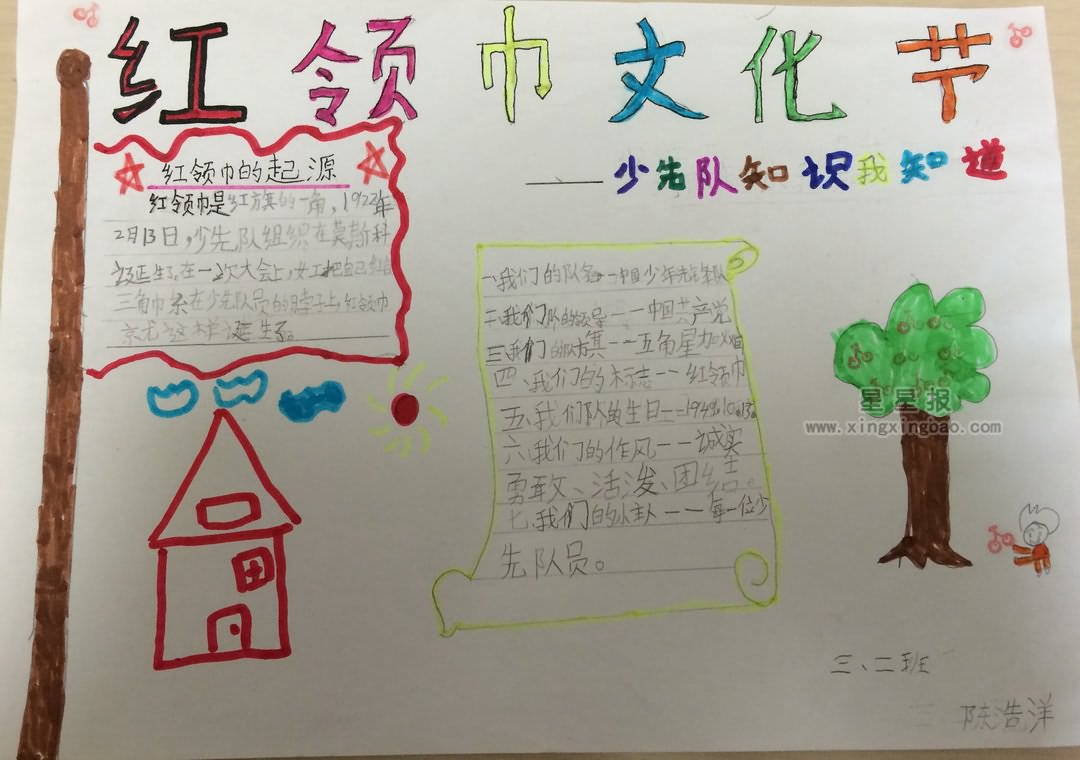 红领巾文化节
——少先队知识我知道
红领巾的起源
红领巾是红旗的一角，1922年
2月13日，少先队组织在莫斯科
诞生了，在一次大会上，女工把自己
三角巾系在少先队员的脖子上，红领巾
就这样诞生了。
一、我们的队名——中国少年先锋队
二、我们队的领导——中国共产党
三、我们的队旗——五角星加火炬
四、我们的标志——红领巾
五、我们队的生日——1949.10.13.
六、我们的作风——诚实
勇敢、活泼、团结。
七、我们的——每一位少
先队员。
星星报
www.xingxingbao.com
三、二班
陈浩洋